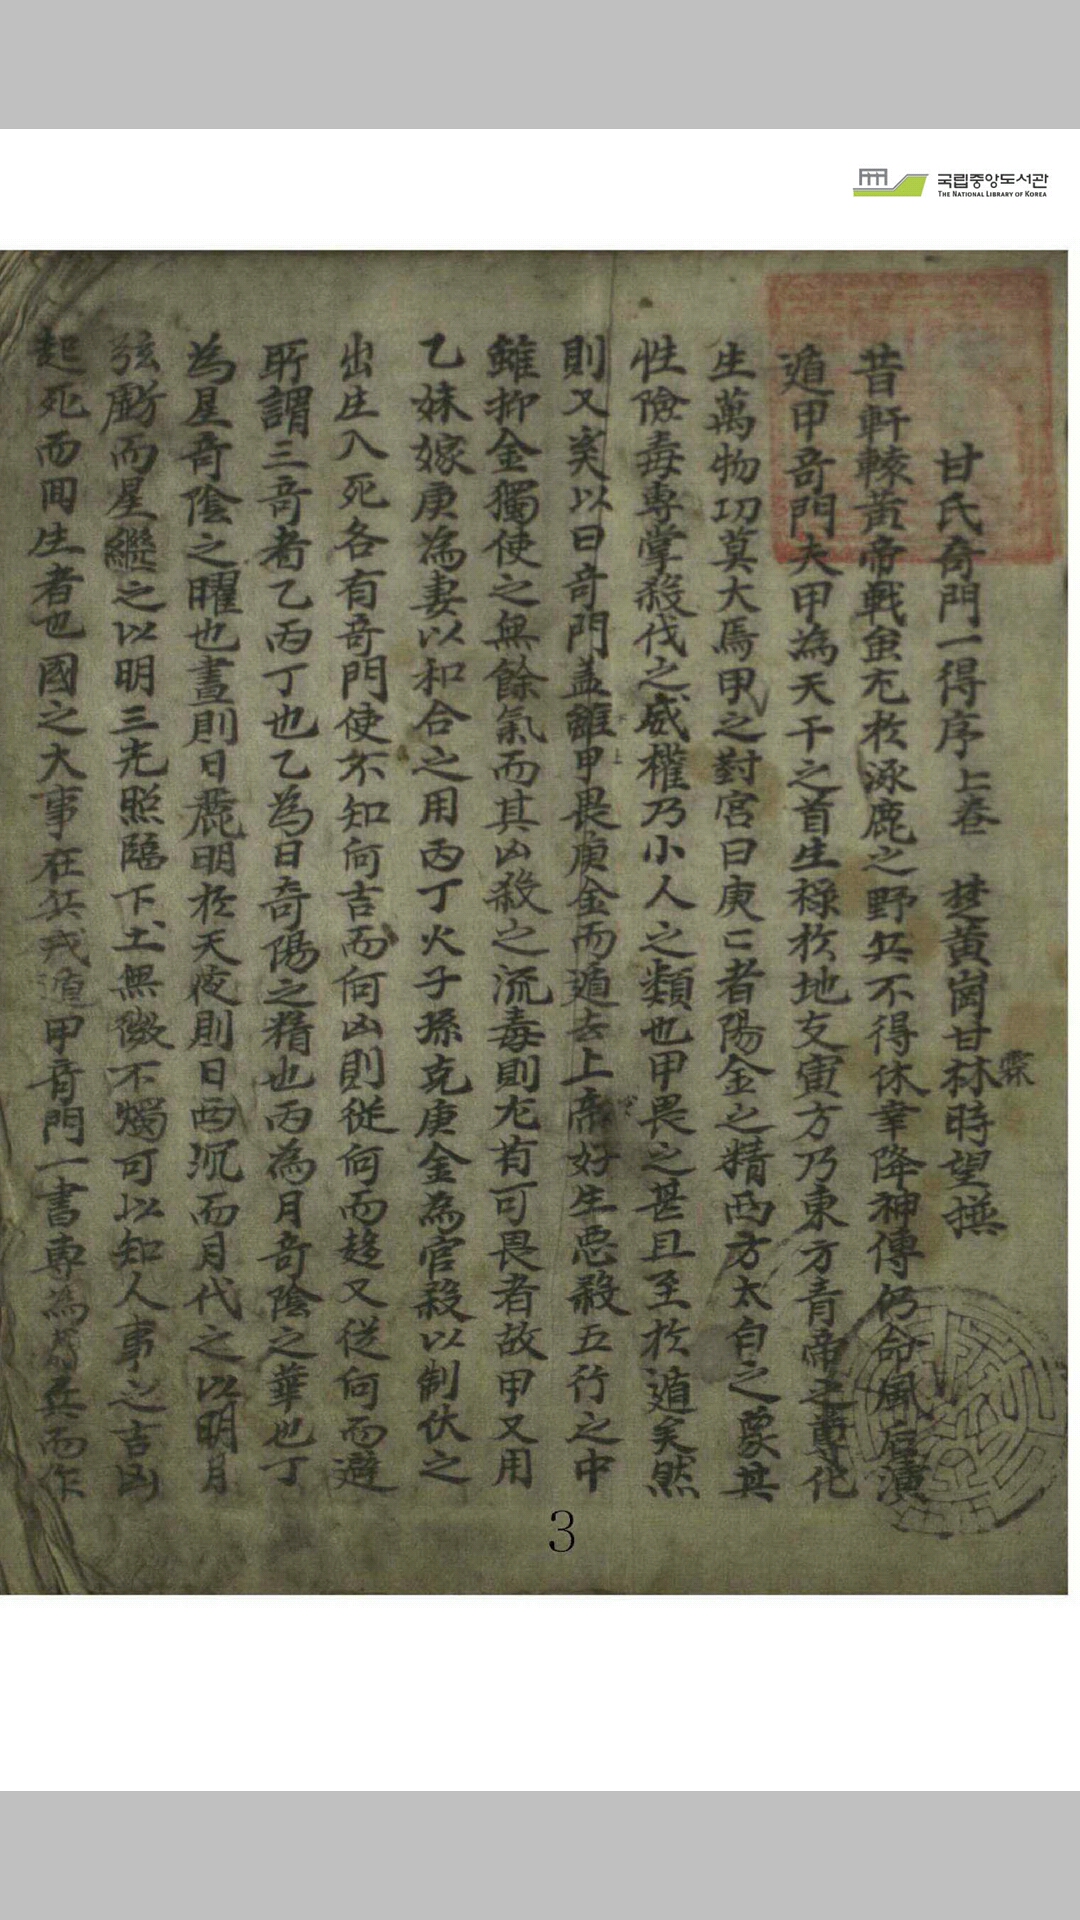 국립중앙도서관
THE NATIONAL LIBRARY OF KOREA
甘氏奇門一得序上卷 楚黃崗甘霖時望撰
昔軒轅黃帝戰蚩尤於涿鹿之野兵不得休幸降神傳仍命風后演
遁甲奇門夫甲為天干之首生祿於地支寅方乃東方青帝之尊化
生萬物功莫大焉甲之對宮曰庚〻者陽金之精西方太白之象其
性險毒專掌殺伐之威權乃小人之類也甲畏之甚且至於遁矣然
則又奚以曰奇門盖雖甲畏庚金而遁去上帝好生惡殺五行之中
雖抑金獨使之無餘氣而其凶殺之流毒則尤有可畏者故甲又用
乙妹嫁庚為妻以和合之用丙丁火子孫克庚金為官殺以制伏之
出生入死各有奇門使不知何吉而何凶則從何而趍又從何而避
所謂三奇者乙丙丁也乙為日奇陽之精也丙為月奇陰之華也丁
為星奇陰之曜也晝則日麗明於天夜則日西沉而月代之以明月
弦虧而星繼之以明三光照臨下土無微不燭可以知人事之吉凶
起死而回生者也國之大事在兵戎遁甲奇門一書專為兵而作
3